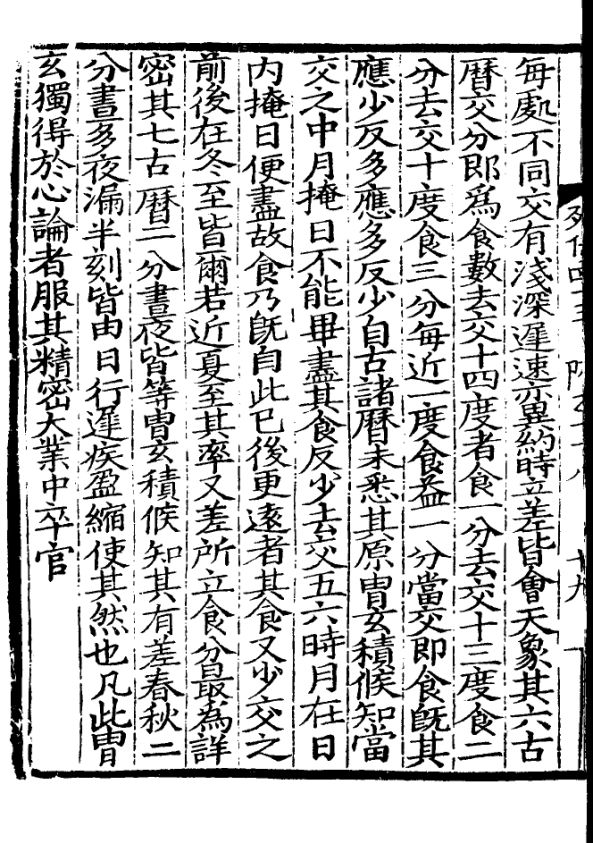 每處不同交有淺深遲速亦異約時立差皆會天象其六古
曆交分即爲食數去交十四度者食一分去交十三度食二
分去交十度食三分每近一度食益一分當交即食旣其
應少反多應多反少自古諸曆未悉其原胄玄積候知當
交之中月掩日不能畢盡其食反少去交五六時月在日
内掩日便盡故食乃旣自此已後更遠者其食又少交之
前後在冬至皆爾若近夏至其率又差所立食分最爲詳
密其七古曆二分晝夜皆等胄玄積候知其有差春秋二
分晝多夜漏半刻皆由日行遲疾盈縮使其然也凡此胄
玄獨得於心論者服其精密大業中卒官